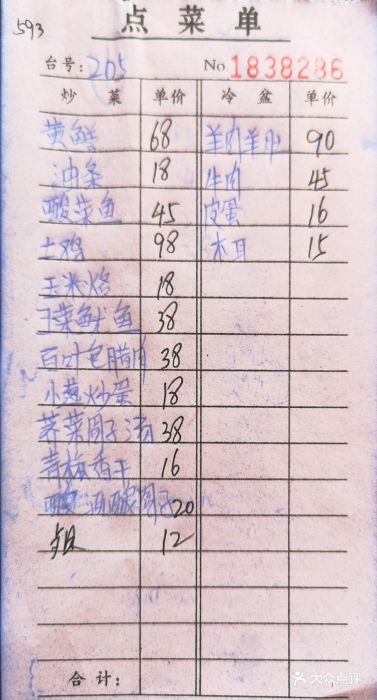 593
点菜单
台号: 205 No. 1838286
炒菜 单价 冷盆 单价
黄鳝 68 羊肉羊肚 90
油条 18 牛肉 45
酸菜鱼 45 皮蛋 16
土鸡 98 木耳 15
玉米烙 18
38
百叶包腊肉 38
小葱炒蛋 18
荠菜圆子汤 38
香干 16
20
12
合计:
大众点评